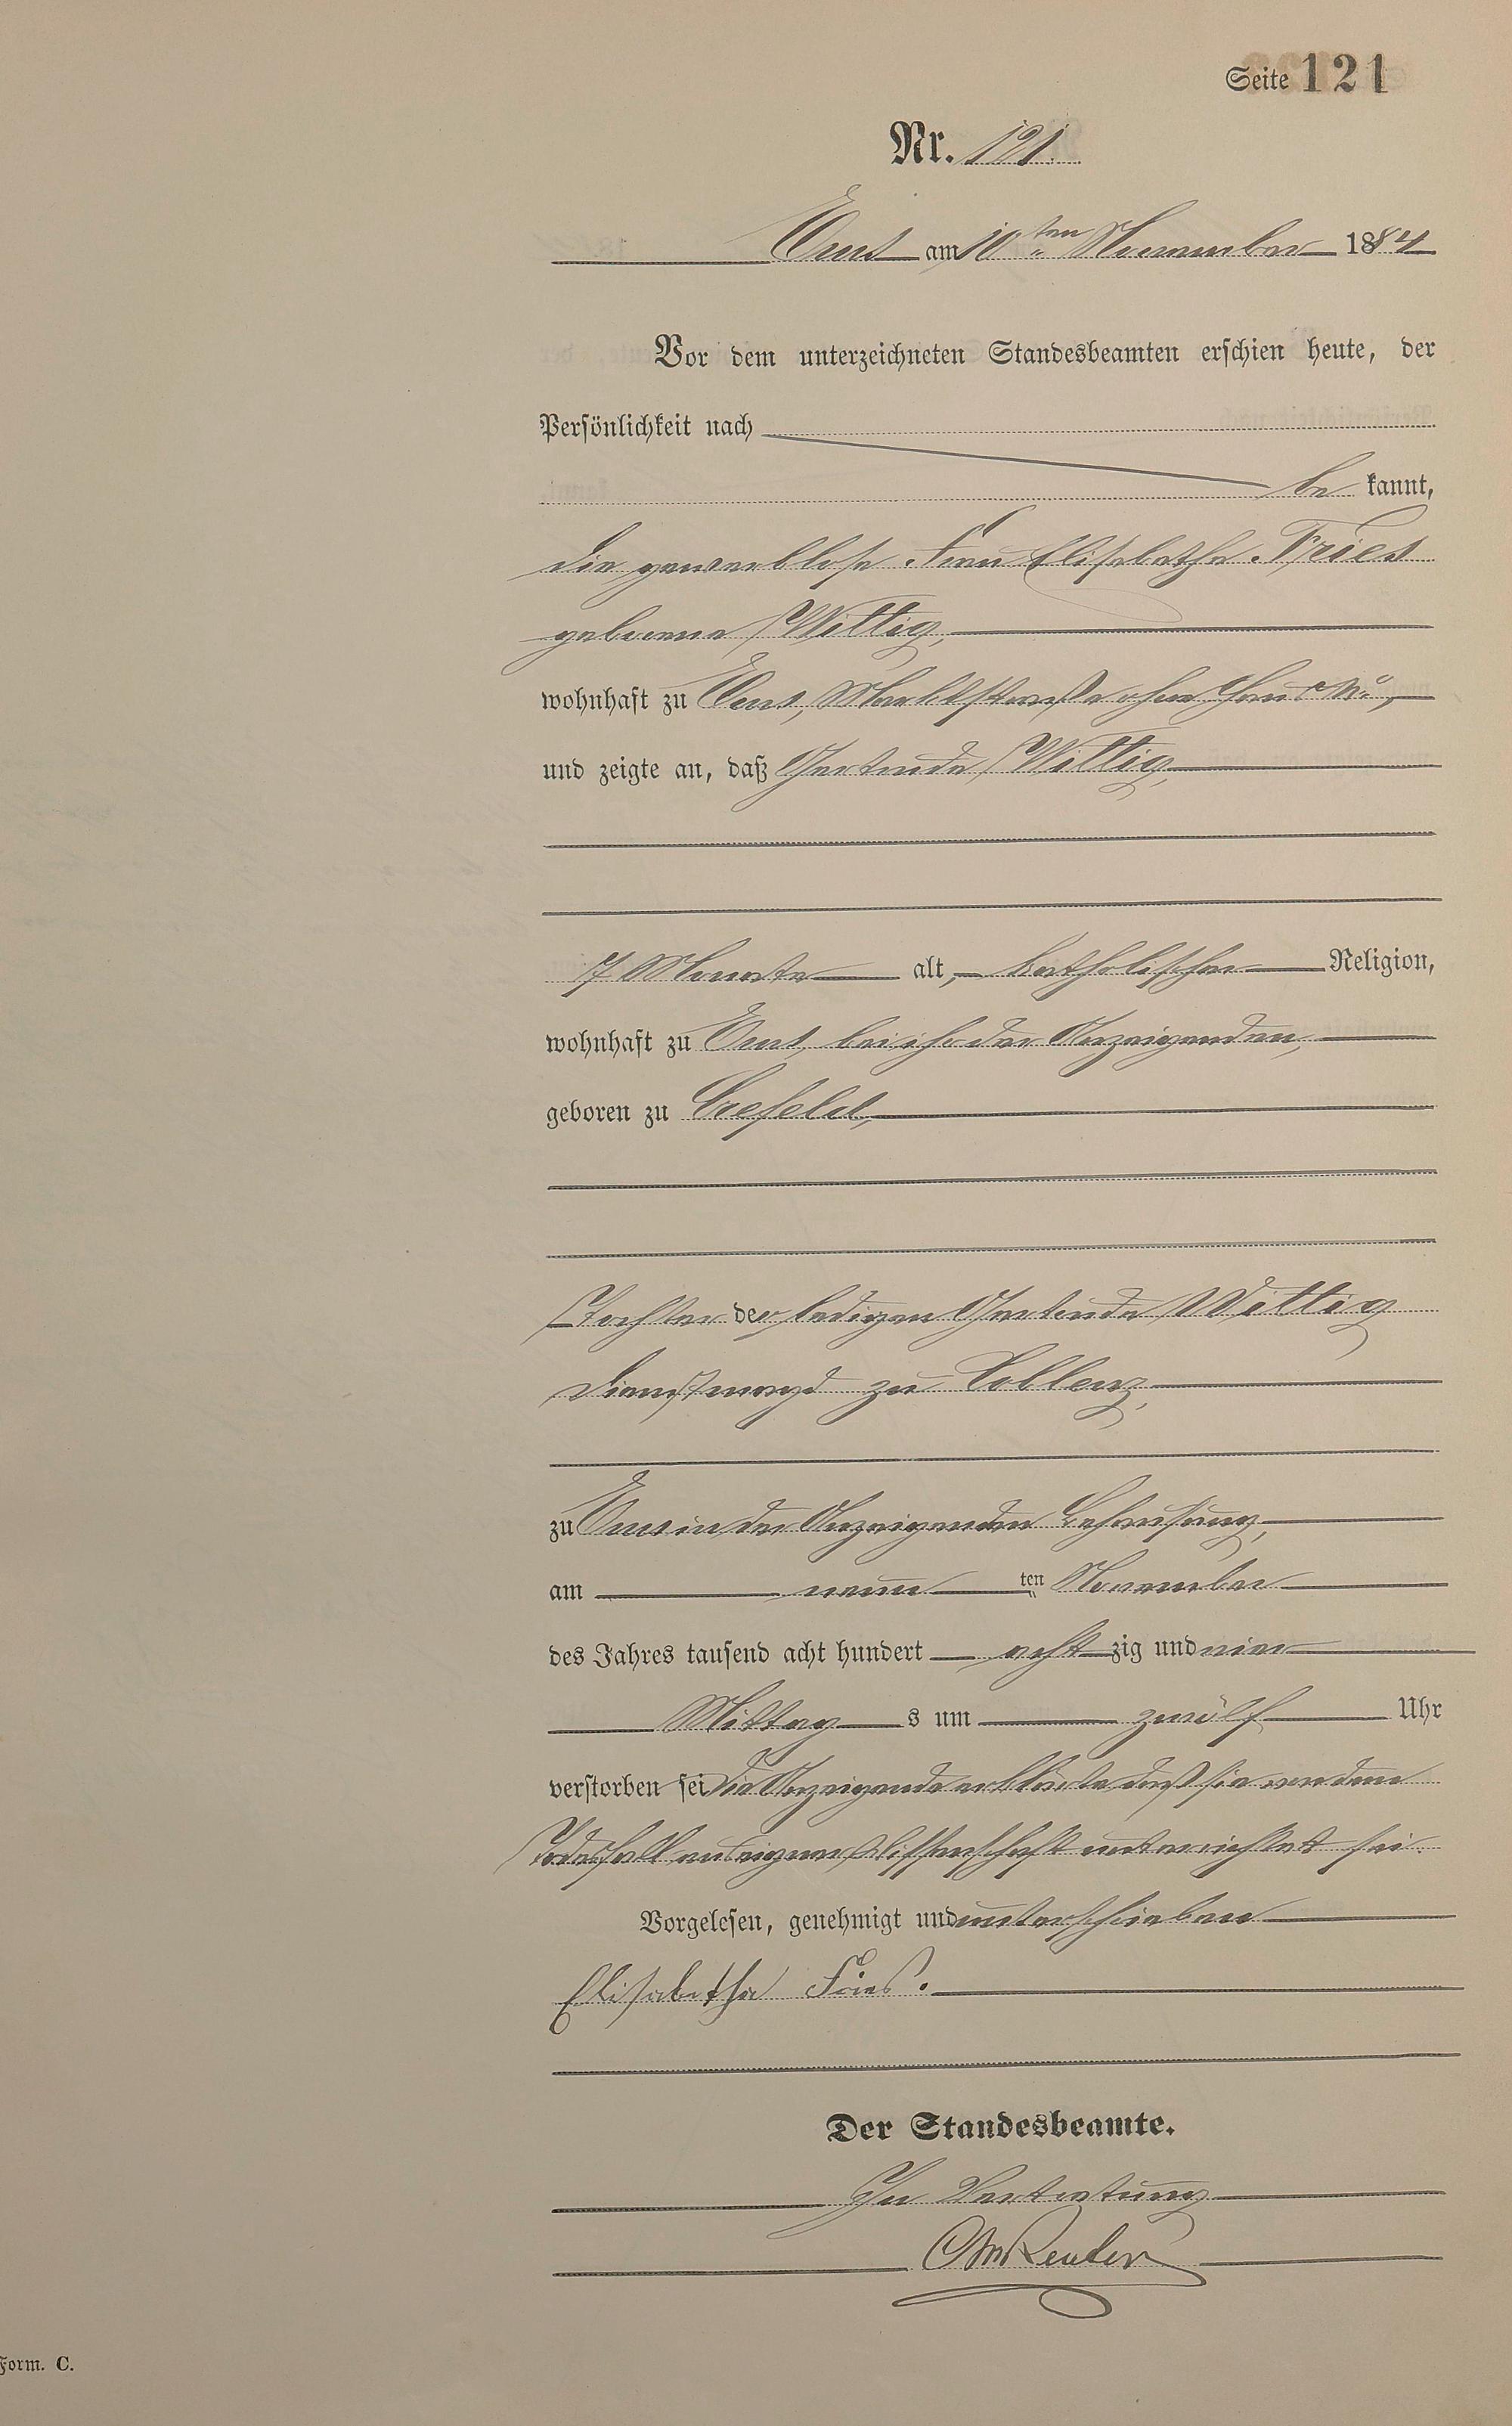 Seite 121
Nr. 121.
Ems am 10ten November 1884
Vor dem unterzeichneten Standesbeamten erschien heute, der
Persönlichkeit nach
be kannt,
die gewerblose Frau Elisabetha Fries
geborene Wittig,
wohnhaft zu Ems, Marktstraße ohne Haus No,
und zeigte an, daß Gertrude Wittig,
7 Monate alt, katholischer Religion,
wohnhaft zu Ems, bei ihr der Anzeigenden,
geboren zu Crefeld,
Tochter der ledigen Gertrude Wittig
Dienstmagd zu Coblenz,
zu Ems in der Anzeigenden Behausung,
am neun ten November
des Jahres tausend acht hundert acht zig und vier
Mittag s um zwölf Uhr
verstorben sei die Anzeigende erklärte daß sie von dem
Todesfall aus eigner Wissenschaft unterrichtet sei.
Vorgelesen, genehmigt und unterschrieben
Elisabetha Fries.
Der Standesbeamte.
In Vertretung
Reuter
Form. C.